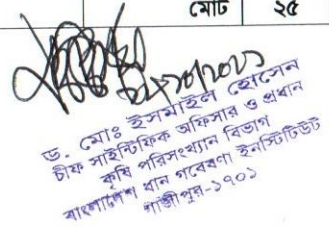 মোট ২৫
ড. মোঃ ইসমাইল হোসেন
চীফ সাইন্টিফিক অফিসার ও প্রধান
কৃষি পরিসংখ্যান বিভাগ
বাংলাদেশ ধান গবেষণা ইনস্টিটিউট
গাজীপুর-১৭০১